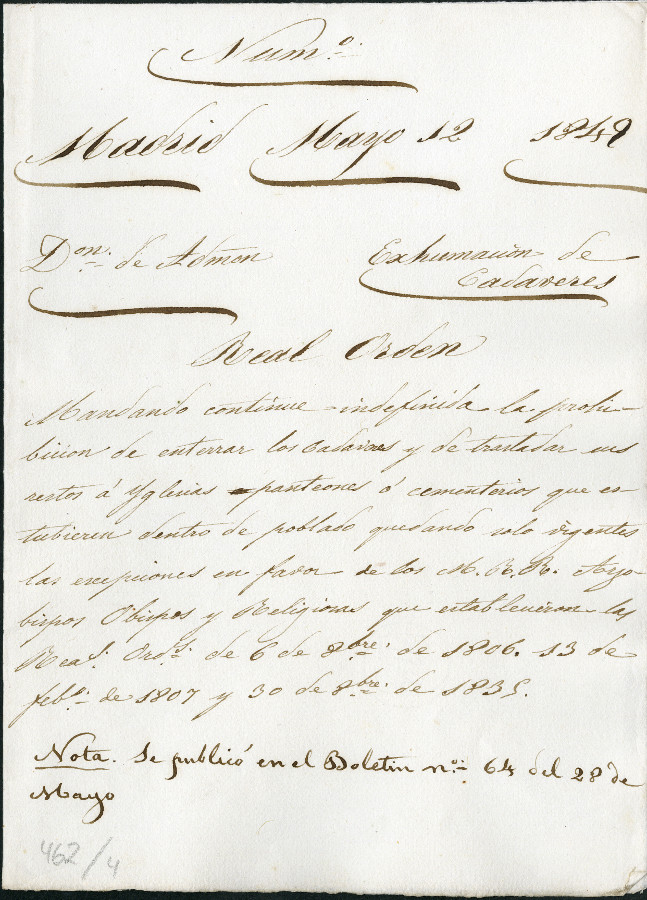 Num.º
Madrid Mayo 12 1849
Don. de Admon Exhumacion de
Cadaveres
Real Orden
Mandando continue indefinida la prohi-
bicion de enterrar los Cadaveres y de trasladar sus
restos á Yglesias panteones ó cementerios que es-
tubieren dentro de poblado quedando solo vigentes
las escepciones en favor de los M. R. R. Arzo-
bispos Obispos y Religiosas que establecieron las
Real.s Ord.s de 6 de 8bre. de 1806. 13 de
feb.o de 1807 y 30 de 8bre. de 1835.
Nota. Se publicó en el Boletin n.o 64 del 28 de
Mayo
462/4